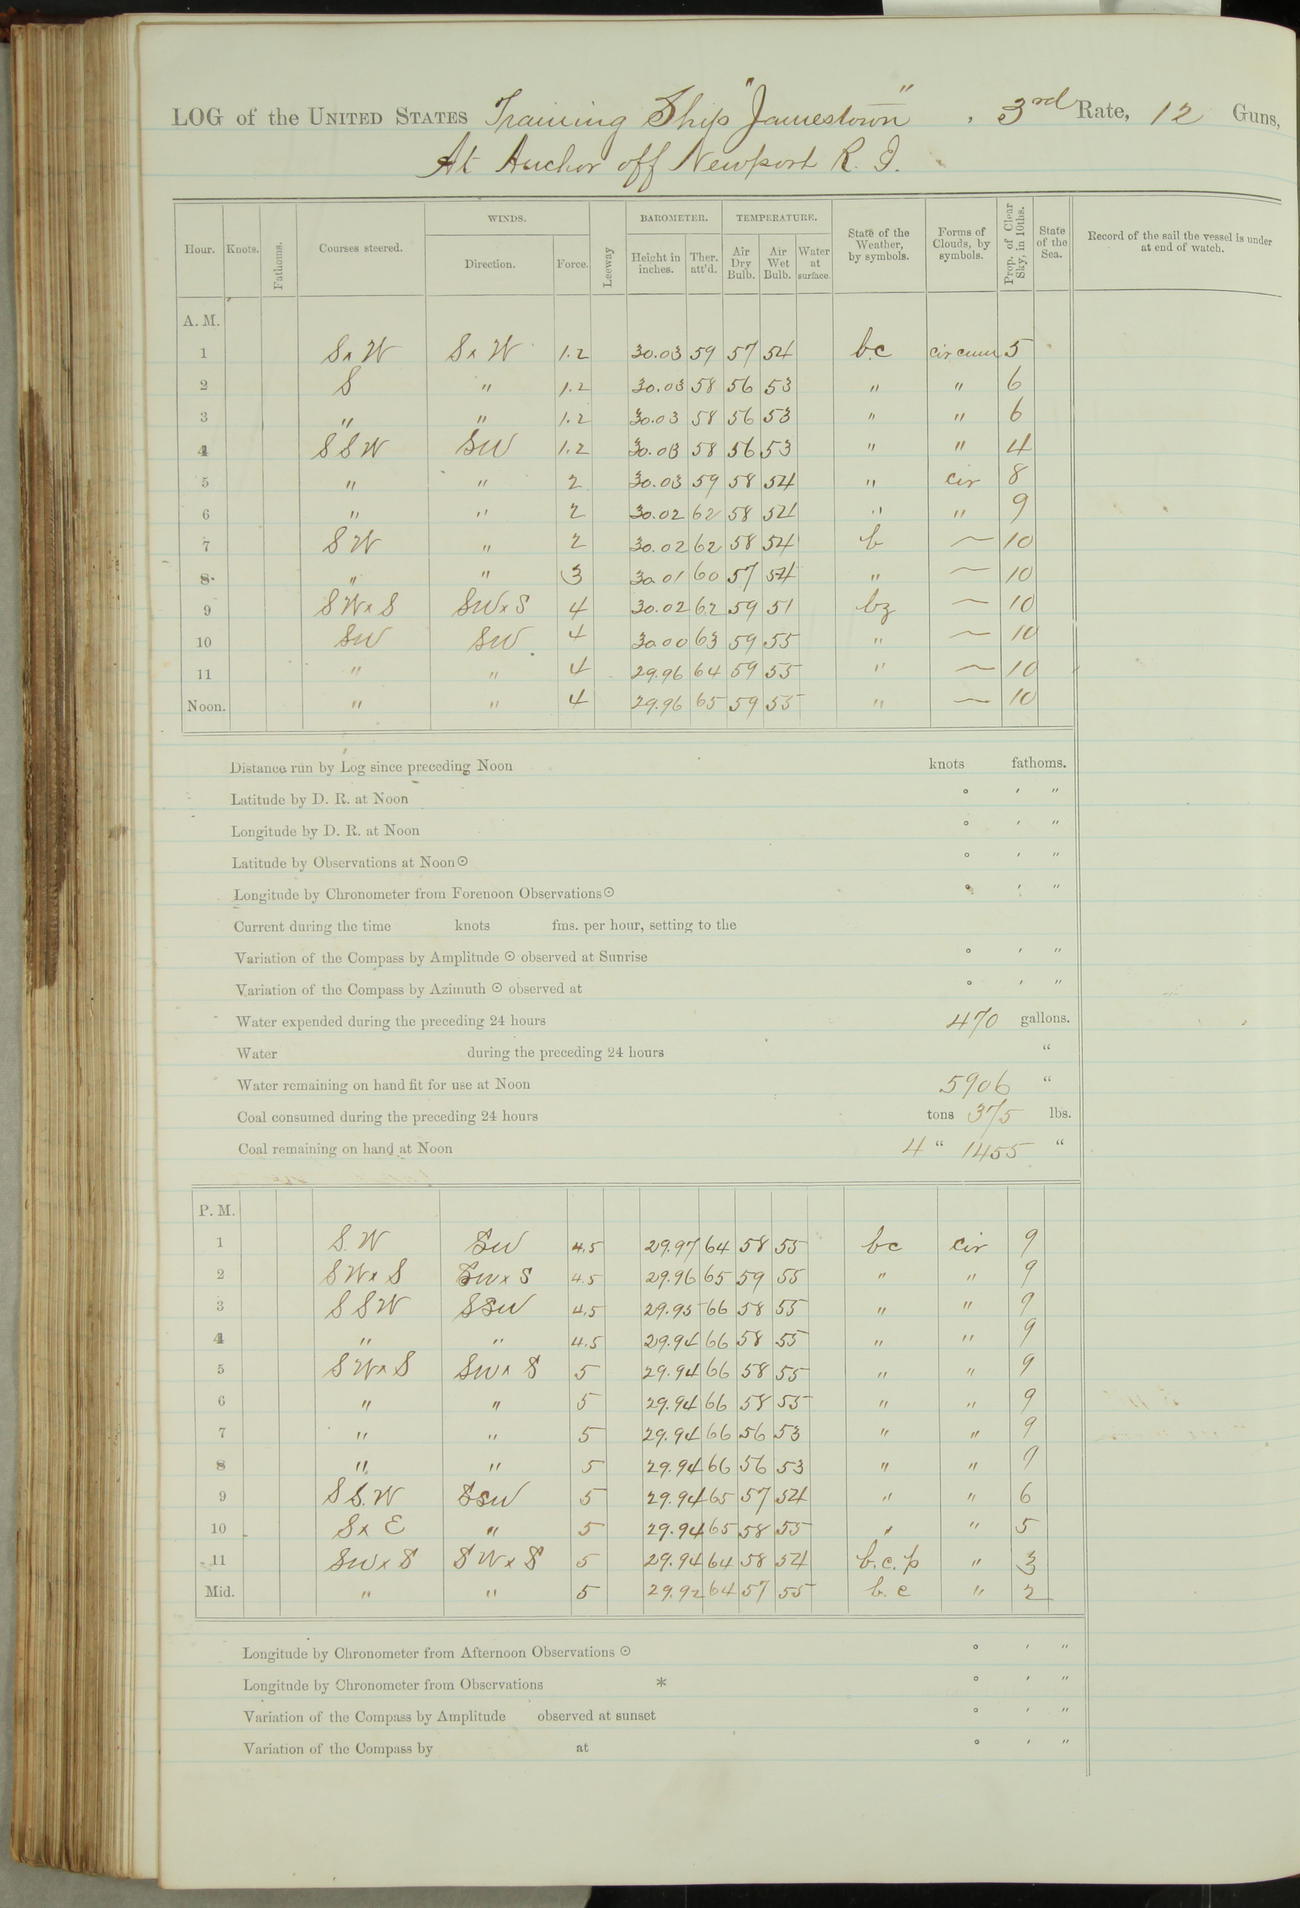 LOG of the UNITED STATES Training Ship "Jamestown", 3rd Rate, 12 Guns,
At Anchor off Newport R. I.
Hour. Knots. Fathoms. Courses steered. WINDS. Direction. Force. Leeway BAROMETER. Height in inches. Ther. att'd. TEMPERATURE. Air Dry Bulb. Air Wet Bulb. Water at surface. State of the Weather, by symbols. Forms of Clouds, by symbols. Prop. of Clear Sky, in 10ths. State of the Sea. Record of the sail the vessel is under at end of watch.
A. M.
1 SxW SxW 1.2 30.03 59 57 54 bc cir cum 5
2 S " 1.2 30.03 58 56 53 " " 6
3 " " 1.2 30.03 58 56 53 " " 6
4 SSW SW 1.2 30.03 58 56 53 " " 4
5 " " 2 30.03 59 58 54 " cir 8
6 " " 2 30.02 62 58 54 " " 9
7 SW " 2 30.02 62 58 54 b — 10
8 " " 3 30.01 60 57 54 " — 10
9 SWxS SWxS 4 30.02 62 59 51 bz — 10
10 SW SW 4 30.00 63 59 55 " — 10
11 " " 4 29.96 64 59 55 " — 10
Noon. " " 4 29.96 65 59 55 " — 10
Distance run by Log since preceding Noon knots fathoms.
Latitude by D. R. at Noon ° ' "
Longitude by D. R. at Noon ° ' "
Latitude by Observations at Noon ☉ ° ' "
Longitude by Chronometer from Forenoon Observations ☉ ° ' "
Current during the time knots fms. per hour, setting to the
Variation of the Compass by Amplitude ☉ observed at Sunrise ° ' "
Variation of the Compass by Azimuth ☉ observed at ° ' "
Water expended during the preceding 24 hours 470 gallons.
Water during the preceding 24 hours "
Water remaining on hand fit for use at Noon 5906 "
Coal consumed during the preceding 24 hours tons 375 lbs.
Coal remaining on hand at Noon 4 " 1455 "
P. M.
1 S.W SW 4.5 29.97 64 58 55 bc cir 9
2 SWxS SWxS 4.5 29.96 65 59 55 " " 9
3 SSW SSW 4.5 29.95 66 58 55 " " 9
4 " " 4.5 29.94 66 58 55 " " 9
5 SWxS SWxS 5 29.94 66 58 55 " " 9
6 " " 5 29.94 66 58 55 " " 9
7 " " 5 29.94 66 56 53 " " 9
8 " " 5 29.94 66 56 53 " " 9
9 SS.W SSW 5 29.94 65 57 54 " " 6
10 SxE " 5 29.94 65 58 55 " " 5
11 SWxS SWxS 5 29.94 64 58 54 b.c.p " 3
Mid. " " 5 29.92 64 57 55 b.c " 2
Longitude by Chronometer from Afternoon Observations ☉ ° ' "
Longitude by Chronometer from Observations * ° ' "
Variation of the Compass by Amplitude observed at sunset ° ' "
Variation of the Compass by at ° ' "